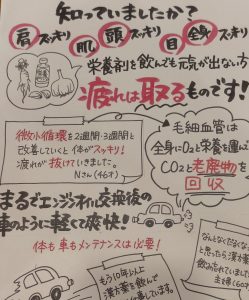 知っていましたか?
肩スッキリ 肌 頭スッキリ 目 全身スッキリ
栄養剤を飲んでも元気が出ない方
疲れは取るものです!
微小循環を2週間・3週間と
改善していくと体がスッキリ!
疲れが抜けていきました。
Nさん(46才)
毛細血管は
全身にO2と栄養を運んで
CO2と老廃物を
回収
まるでエンジンオイル交換後の
車のように軽くて爽快!
体も車もメンテナンスは必要!
もう10年以上
漢方薬を飲んで
います。
なんとなくだなくな
と思ったら漢方薬
飲み忘れていました
主婦